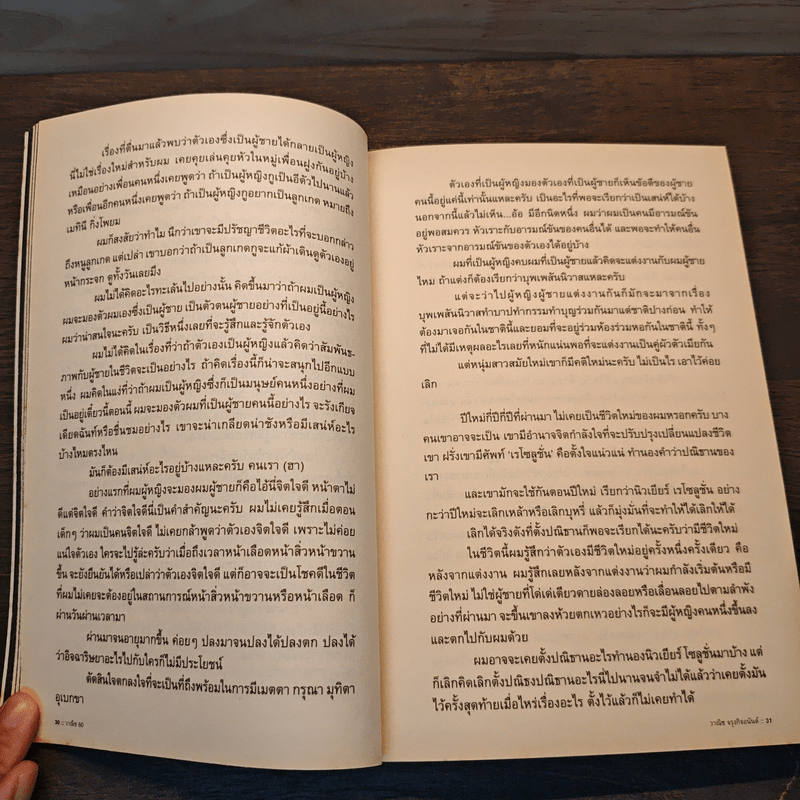 เรื่องที่ตื่นมาแล้วพบว่าตัวเองซึ่งเป็นผู้ชายได้กลายเป็นผู้หญิง
นี่ไม่ใช่เรื่องใหม่สำหรับผม เคยคุยเล่นคุยหัวในหมู่เพื่อนฝูงกันอยู่บ้าง
เหมือนอย่างเพื่อนคนหนึ่งเคยพูดว่า ถ้าเป็นผู้หญิงกูเป็นอีตัวไปนานแล้ว
หรือเพื่อนอีกคนหนึ่งเคยพูดว่า ถ้าเป็นผู้หญิงกูอยากเป็นลูกเกด หมายถึง
เมทินี กิ่งโพยม
ผมก็สงสัยว่าทำไม นึกว่าเขาจะมีปรัชญาชีวิตอะไรที่จะบอกกล่าว
ถึงหนูลูกเกด แต่เปล่า เขาบอกว่าถ้าเป็นลูกเกดกูจะแก้ผ้าเดินดูตัวเองอยู่
หน้ากระจก ดูทั้งวันเลยมึง
ผมไม่ได้คิดอะไรทะเล้นไปอย่างนั้น คิดขึ้นมาว่าถ้าผมเป็นผู้หญิง
ผมจะมองตัวผมเองซึ่งเป็นผู้ชาย เป็นตัวตนผู้ชายอย่างที่เป็นอยู่นี้อย่างไร
ผมว่าน่าสนใจนะครับ เป็นวิธีหนึ่งเลยที่จะรู้สึกและรู้จักตัวเอง
ผมไม่ได้คิดในเรื่องที่ว่าถ้าตัวเองเป็นผู้หญิงแล้วคิดว่าสัมพันธ-
ภาพกับผู้ชายในชีวิตจะเป็นอย่างไร ถ้าคิดเรื่องนี้ก็น่าจะสนุกไปอีกแบบ
หนึ่ง ผมคิดในแง่ที่ว่าถ้าผมเป็นผู้หญิงซึ่งก็เป็นมนุษย์คนหนึ่งอย่างที่ผม
เป็นอยู่เดี๋ยวนี้ตอนนี้ ผมจะมองตัวผมที่เป็นผู้ชายคนนี้อย่างไร จะรังเกียจ
เดียดฉันท์หรือชื่นชมอย่างไร เขาจะน่าเกลียดน่าชังหรือมีเสน่ห์อะไร
บ้างไหมตรงไหน
มันก็ต้องมีเสน่ห์อะไรอยู่บ้างแหละครับ คนเรา (ฮา)
อย่างแรกที่ผมผู้หญิงจะมองผมผู้ชายก็คือไอ้นี่จิตใจดี หน้าตาไม่
ดีแต่จิตใจดี คำว่าจิตใจดีนี่เป็นคำสำคัญนะครับ ผมไม่เคยรู้สึกเมื่อตอน
เด็กๆ ว่าผมเป็นคนจิตใจดี ไม่เคยกล้าพูดว่าตัวเองจิตใจดี เพราะไม่ค่อย
แน่ใจตัวเอง ใครจะไปรู้ล่ะครับว่าเมื่อถึงเวลาหน้าเลือดหน้าสิ่วหน้าขวาน
ขึ้น จะยังยืนยันได้หรือเปล่าว่าตัวเองจิตใจดี แต่ก็อาจจะเป็นโชคดีในชีวิต
ที่ผมไม่เคยจะต้องอยู่ในสถานการณ์หน้าสิ่วหน้าขวานหรือหน้าเลือด ก็
ผ่านวันผ่านเวลามา
ผ่านมาจนอายุมากขึ้น ค่อยๆ ปลงมาจนปลงได้ปลงตก ปลงได้
ว่าอิจฉาริษยาอะไรไปกับใครก็ไม่มีประโยชน์
ตัดสินใจตกลงใจที่จะเป็นที่ถึงพร้อมในการมีเมตตา กรุณา มุทิตา
อุเบกขา
30 :: วาณิช 60
ตัวเองที่เป็นผู้หญิงมองตัวเองที่เป็นผู้ชายก็เห็นข้อดีของผู้ชาย
คนนี้อยู่แค่นี้เท่านั้นแหละครับ เป็นอะไรที่พอจะเรียกว่าเป็นเสน่ห์ได้บ้าง
นอกจากนี้แล้วไม่เห็น...อ้อ มีอีกนิดหนึ่ง ผมว่าผมเป็นคนมีอารมณ์ขัน
อยู่พอสมควร หัวเราะกับอารมณ์ขันของคนอื่นได้ และพอจะทำให้คนอื่น
หัวเราะจากอารมณ์ขันของตัวเองได้อยู่บ้าง
ผมที่เป็นผู้หญิงคบผมที่เป็นผู้ชายแล้วคิดจะแต่งงานกับผมผู้ชาย
ไหม ถ้าแต่งก็ต้องเรียกว่าบุพเพสันนิวาสแหละครับ
แต่จะว่าไปผู้หญิงผู้ชายแต่งงานกันก็มักจะมาจากเรื่อง
บุพเพสันนิวาสทำบาปทำกรรมทำบุญร่วมกันมาแต่ชาติปางก่อน ทำให้
ต้องมาเจอกันในชาตินี้และยอมที่จะอยู่ร่วมห้องร่วมหอกันในชาตินี้ ทั้งๆ
ที่ไม่ได้มีเหตุผลอะไรเลยที่หนักแน่นพอที่จะแต่งงานเป็นคู่ผัวตัวเมียกัน
แต่หนุ่มสาวสมัยใหม่เขาก็มีคติใหม่นะครับ ไม่เป็นไร เอาไว้ค่อย
เลิก
ปีใหม่กี่ปีกี่ปีที่ผ่านมา ไม่เคยเป็นชีวิตใหม่ของผมหรอกครับ บาง
คนเขาอาจจะเป็น เขามีอำนาจจิตกำลังใจที่จะปรับปรุงเปลี่ยนแปลงชีวิต
เขา ฝรั่งเขามีศัพท์ 'เรโซลูชั่น' คือตั้งใจแน่วแน่ ทำนองคำว่าปณิธานของ
เรา
และเขามักจะใช้กันตอนปีใหม่ เรียกว่านิวเยียร์ เรโซลูชั่น อย่าง
กะว่าปีใหม่จะเลิกเหล้าหรือเลิกบุหรี่ แล้วก็มุ่งมั่นที่จะทำให้ได้เลิกให้ได้
เลิกได้จริงดังที่ตั้งปณิธานก็พอจะเรียกได้นะครับว่ามีชีวิตใหม่
ในชีวิตนี้ผมรู้สึกว่าตัวเองมีชีวิตใหม่อยู่ครั้งหนึ่งครั้งเดียว คือ
หลังจากแต่งงาน ผมรู้สึกเลยหลังจากแต่งงานว่าผมกำลังเริ่มต้นหรือมี
ชีวิตใหม่ ไม่ใช่ผู้ชายที่โด่เด่เดียวดายล่องลอยหรือเลื่อนลอยไปตามลำพัง
อย่างที่ผ่านมา จะขึ้นเขาลงห้วยตกเหวอย่างไรก็จะมีผู้หญิงคนหนึ่งขึ้นลง
และตกไปกับผมด้วย
ผมอาจจะเคยตั้งปณิธานอะไรทำนองนิวเยียร์ โซลูชั่นมาบ้าง แต่
ก็เลิกคิดเลิกตั้งปณิธงปณิธานอะไรนี่ไปนานจนจำไม่ได้แล้วว่าเคยตั้งมั่น
ไว้ครั้งสุดท้ายเมื่อไหร่เรื่องอะไร ตั้งไว้แล้วก็ไม่เคยทำได้
วาณิช จรุงกิจอนันต์ :: 31